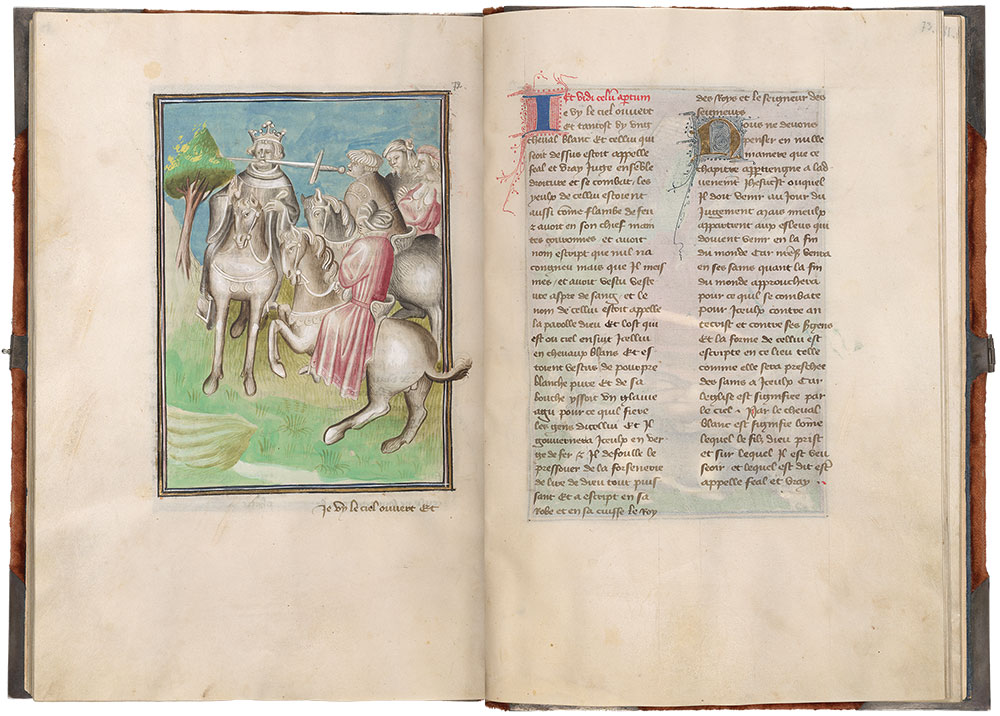 72.
Je vy le ciel ouvert Et
73
Et vidi celu aptum
Je vy le ciel ouvert
Et tantost vy ung
cheval blanc Et cellui qui
seoit dessus estoit appelle
feal et vray Juge ensēble
droiture et se combat. les
yeulx de cellui estoient
aussi cōme flambe de feu
z avoit en son chief main
tes couronnes et avoit
nom escript que nul na
congneu mais que Il mes
mes / et avoit vestu veste
de sang / et le
nom de cellui estoit appelle
la parolle dieu Et lost qui
est ou ciel ensuit Icellui
en chevaux blans Et es
toient vestus de pourpre
blanche pure Et de sa
bouche yssoit un glaive
agu pour ce quil fiere
les gens dicellui Et Il
gouvernera Iceulx en ver
ge de fer z Il defoulle le
pressouer de la forsenerie
de lire de dieu tout puis
sant Et a escript en sa
robe et en sa cuisse le Roy
des Roys et le seigneur des
seigneurs
Nous ne devons
penser en nulle
maniere que ce
chapitre appertiengne a lad
venement ouquel
Il doit venir au Jour du
Jugement Mais mieulx
appartient aux esleus qui
doivent venir en la fin
du monde Car vendra
en ses sains quant la fin
du monde approuchera
pour ce quil se combate
pour Iceulx contre an
tecrist et contre ses
Et la forme de cellui est
escripte en ce lieu telle
comme elle sera preschee
des sains a Iceulx Car
leglise est signifiee par
le ciel . Par le cheval
blanc est signifie lōme
lequel le filz dieu prist
et sur lequel Il est veu
seoir et lequel est dit est
appelle feal et vray ..